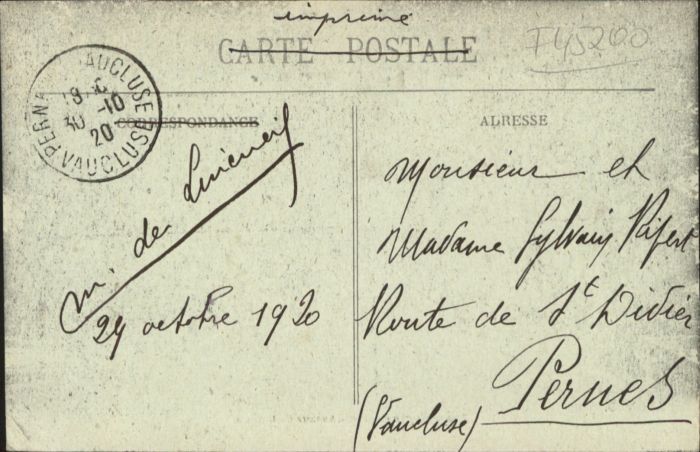 imprimé
CARTE POSTALE
T45200
PERNES VAUCLUSE
30 -10
20
VAUCLUSE
CORRESPONDANCE
ADRESSE
m. de
29 octobre 1920
Monsieur et
Madame Sylvain Ripert
Route de St Didier
Pernes
(Vaucluse)